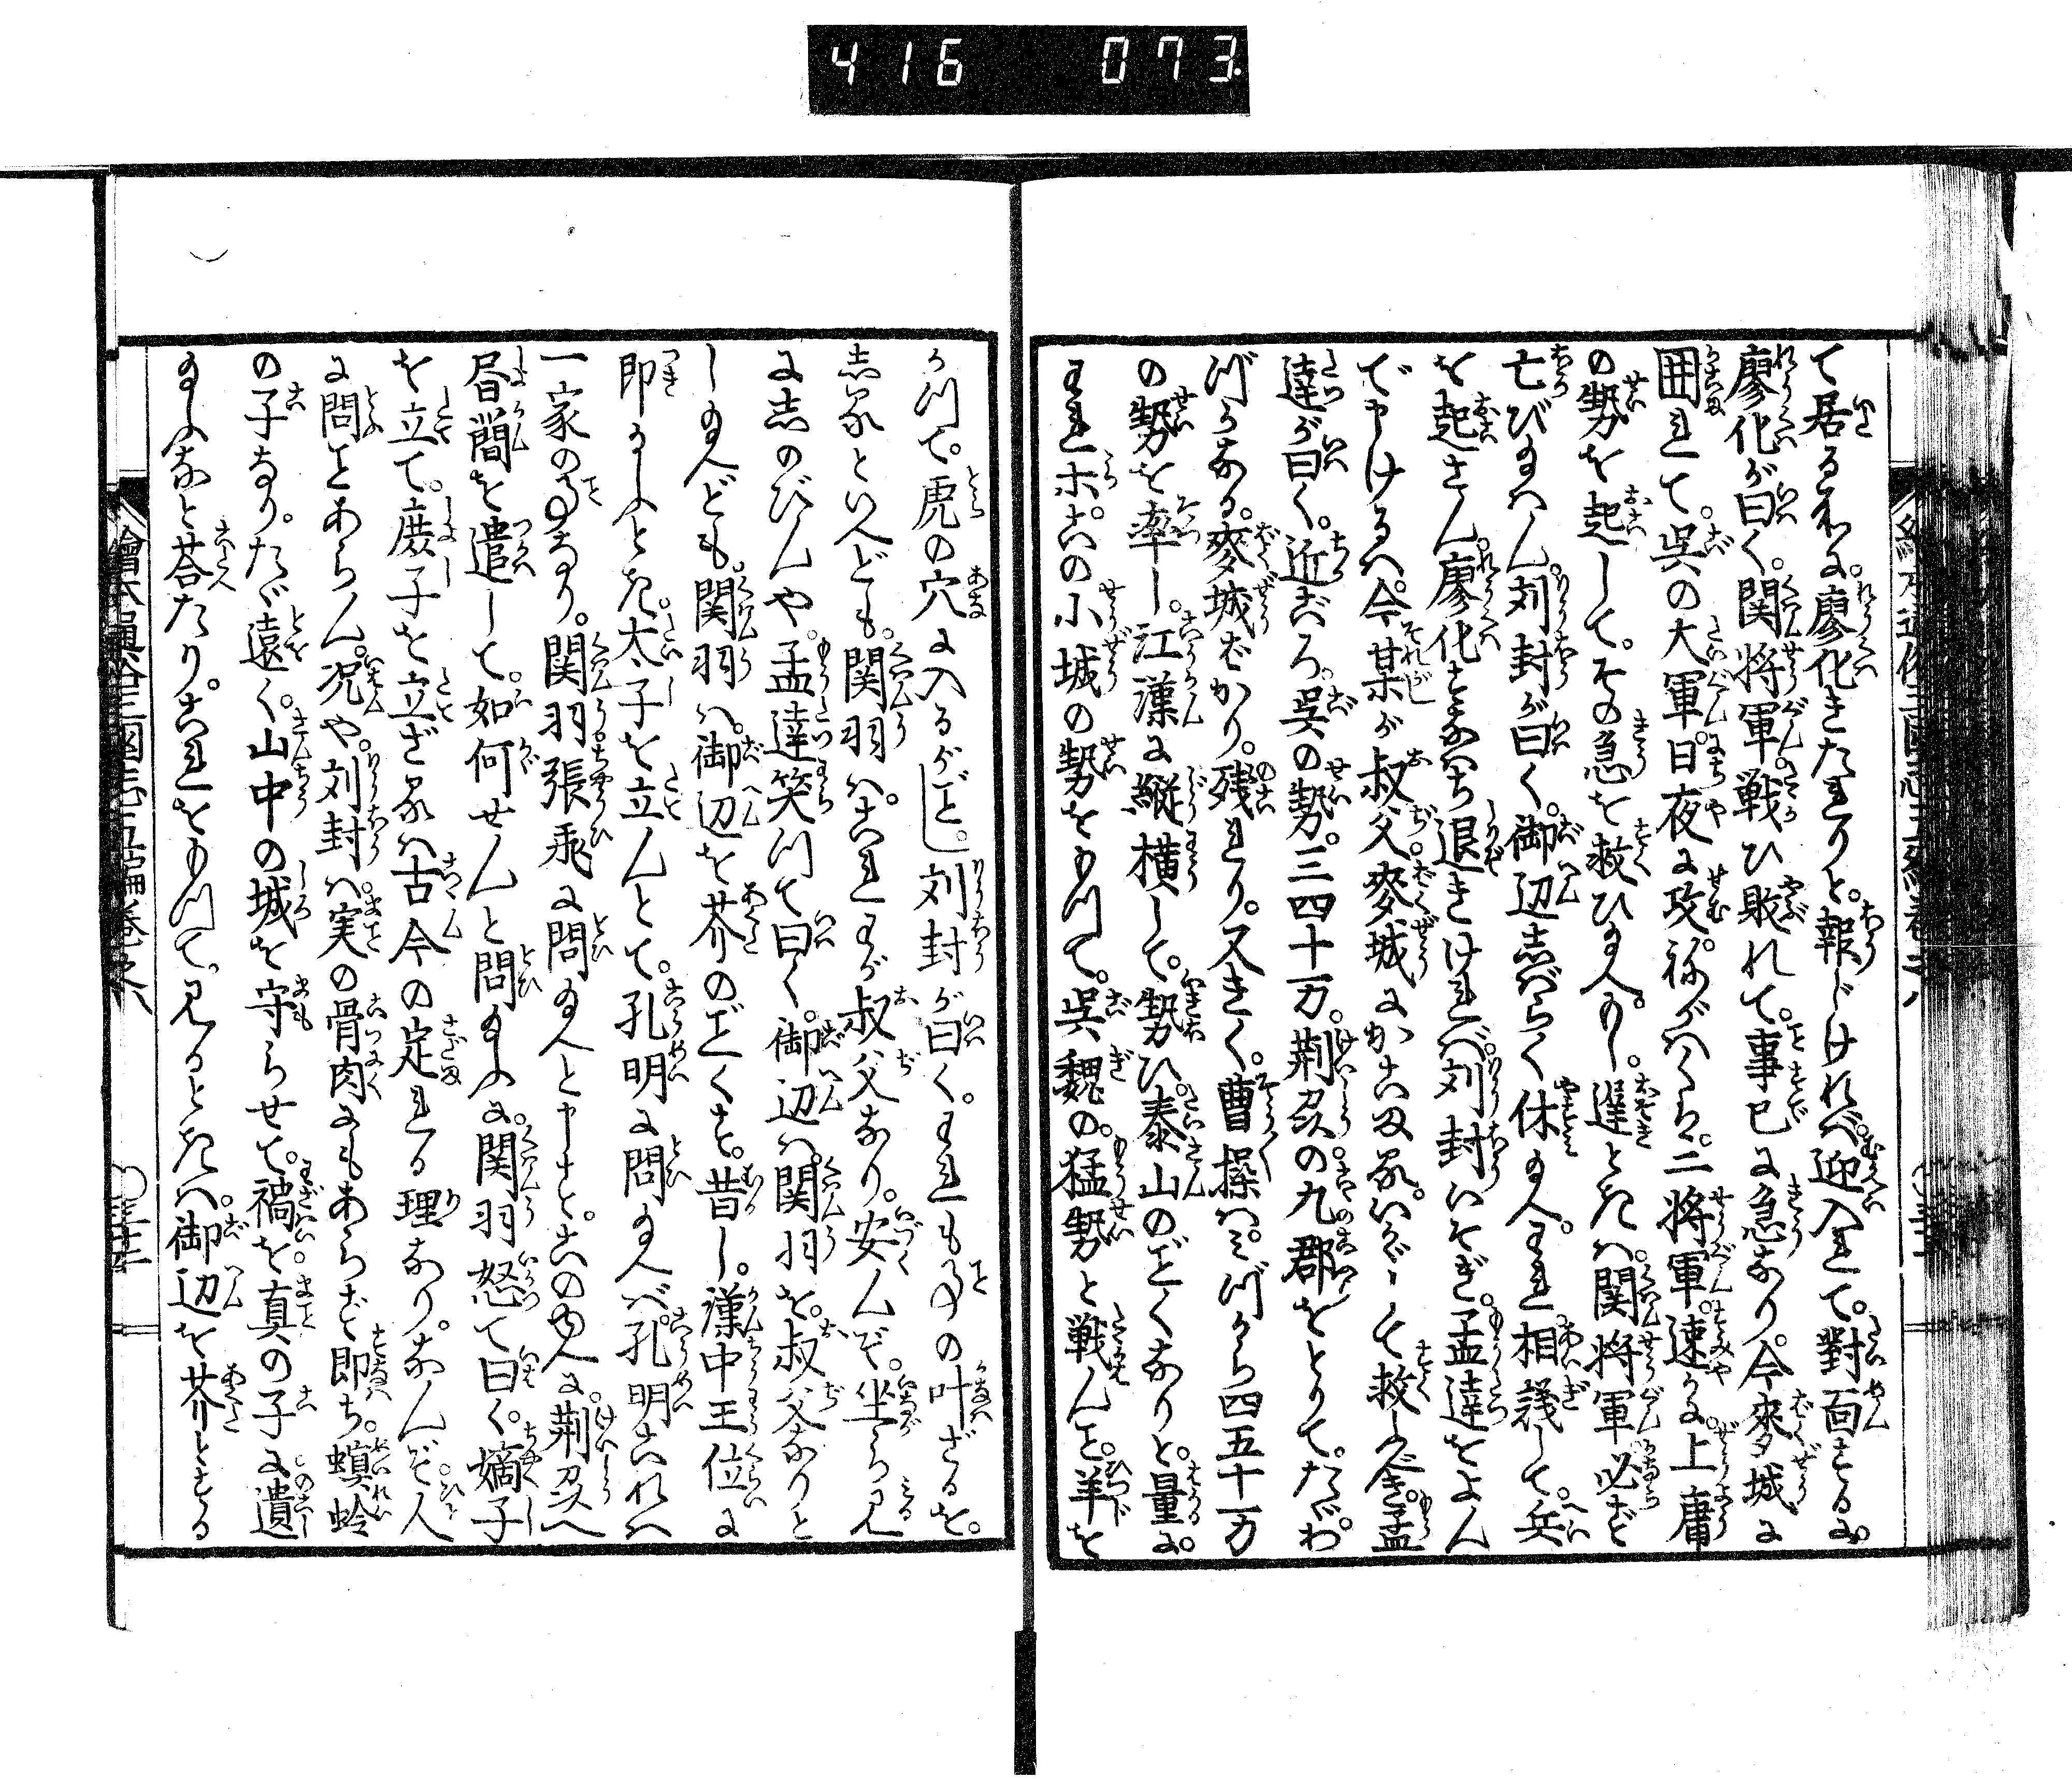 416 073
て居る処に。廖化きたれりと。報じければ。迎入れて。対面するに。
廖化が曰く。関将軍戦ひ敗れて。事已に急なり。今麥城に
囲れて。呉の大軍。日夜に攻。祢がはくは。二将軍。速かに。上庸
の勢を起して。その急を救ひ給へ。もし。遅ときは。関将軍必ず
亡び給はん。刘封が曰く。御辺しばらく休給へ。われ。相議して。兵
を起さん。廖化すなはち退きければ。刘封いそぎ。孟達をよん
で申けるは。今某が叔父。麥城にかこまる。いかゞして救ふべき。孟
達が曰く。近ごろ。呉の勢。三四十万。荆州の九郡をとりて。たゞわ
づかなる。麥城ばかり。残れり。又きく。曹操は。みづから四五十万
の勢を率し。江漢に縦横して。勢ひ。泰山のごくなりと。量に。
われホ。この小城の勢をもつて。呉魏の。猛勢と戦んこと。羊を
かつて。虎の穴に入るがごとし。刘封が曰く。われも事の叶ざるを。
しるといへども。関羽は。これわが叔父なり。安んぞ。坐ら見
に志のびんや。孟達笑つて曰く。御辺は。関羽を。叔父なりと
し給へども。関羽は。御辺を芥のごくす。昔し。漢中王位に
即給ふとき。太子を立んとて。孔明に問給へば。孔明これは
一家の事なり。関羽。張飛に問給へと申す。このゆへに。荆州へ
昼間を遣して。如何せんと問給ふに。関羽怒て曰く。嫡子
を立て。庶子を立ざるは古今の定れる理なり。なんぞ。人
に問ことあらん。况や。刘封は。実の骨肉にもあらず。即ち。螟蛉
の子なり。たゞ遠く。山中の城を守らせて。禍を。真の子に。遺
給ふなと答たり。これをもつて。見るときは。御辺を芥とする
繪本通俗三國志五編巻之八